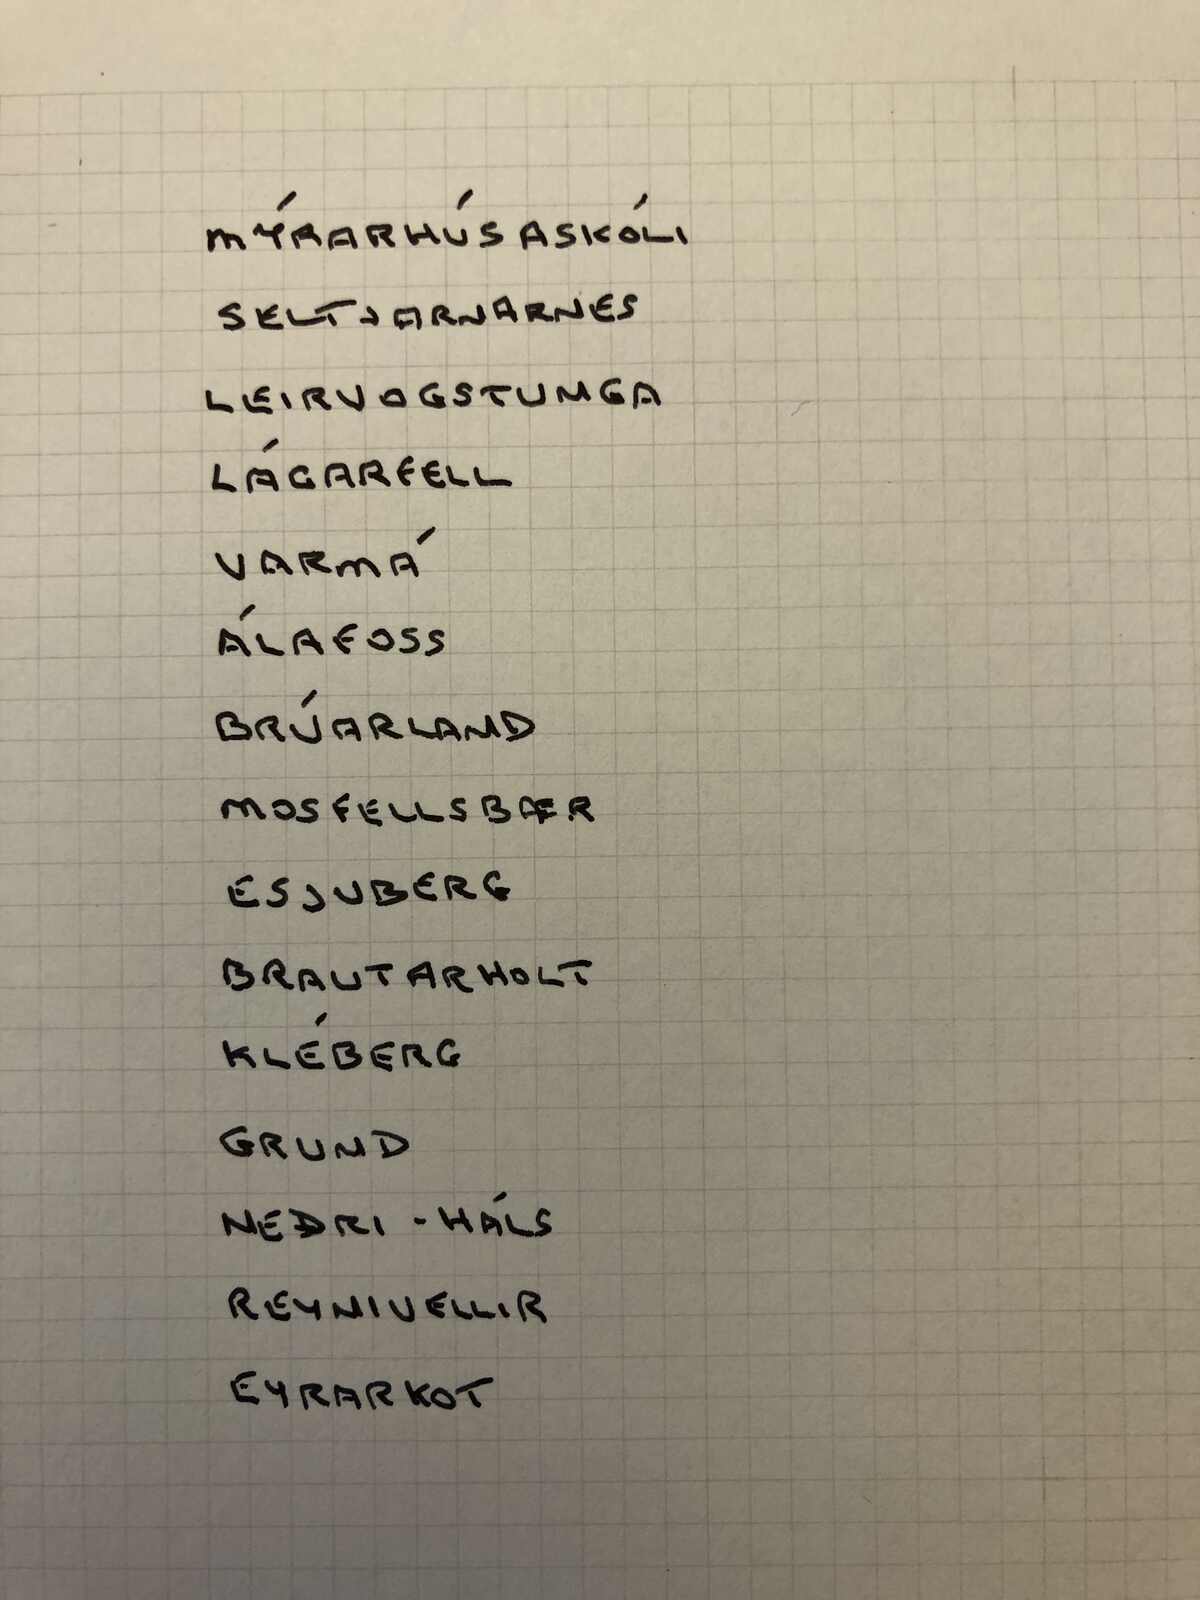 MÝRARHÚSASKÓLI
SELTJARNARNES
LEIRVOGSTUNGA
LÁGARFELL
VARMÁ
ÁLAFOSS
BRÚARLAND
MOSFELLSBÆR
ESJUBERG
BRAUTARHOLT
KLÉBERG
GRUND
NEÐRI-HÁLS
REYNIVELLIR
EYRARKOT